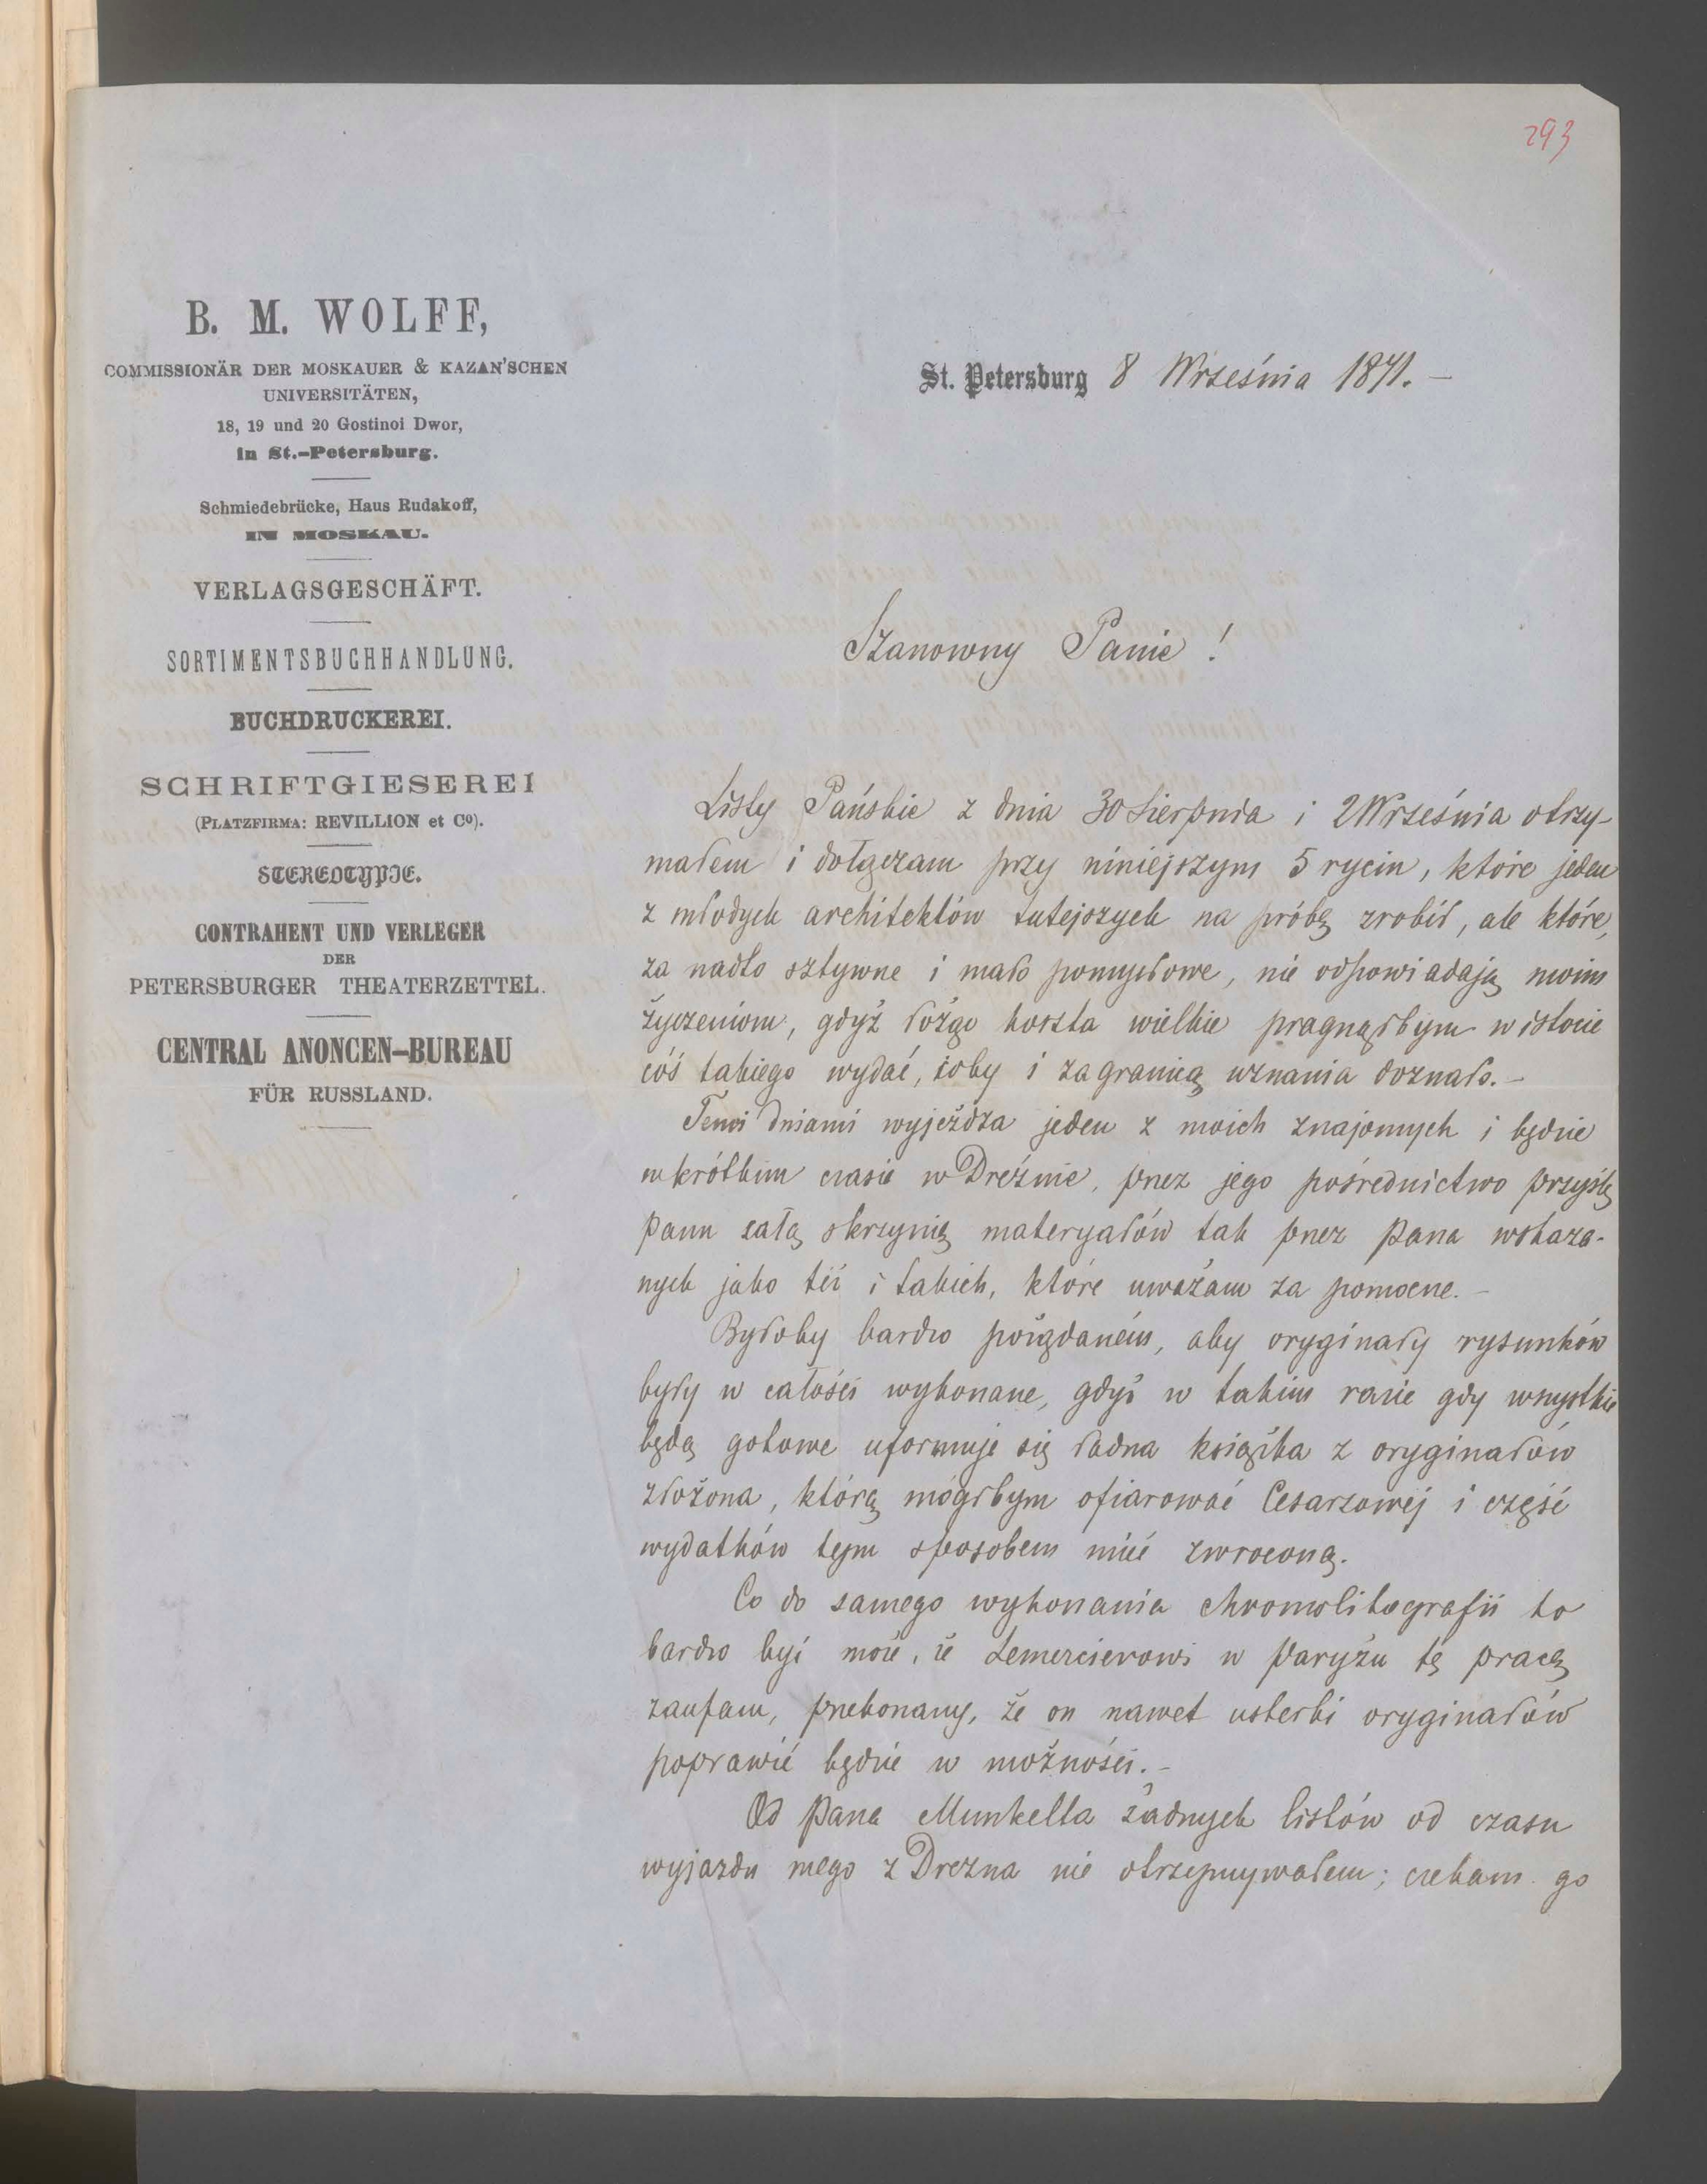 293
B. M. WOLFF,
COMMISSIONÄR DER MOSKAUER & KAZAN'SCHEN
UNIVERSITÄTEN,
18, 19 und 20 Gostinoi Dwor,
in St.-Petersburg.
Schmiedebrücke, Haus Rudakoff,
IN MOSKAU.
VERLAGSGESCHÄFT.
SORTIMENTSBUCHHANDLUNG.
BUCHDRUCKEREI.
SCHRIFTGIESEREI
(PLATZFIRMA: REVILLION et Co).
STEREOTYPIE.
CONTRAHENT UND VERLEGER
DER
PETERSBURGER THEATERZETTEL.
CENTRAL ANONCEN-BUREAU
FÜR RUSSLAND.
St. Petersburg 8 Września 1871. –
Szanowny Panie!
Listy Pańskie z dnia 30 Sierpnia i 2 Września otrzy-
małem i dołączam przy niniejszym 5 rycin, które jeden
z młodych architektów tutejszych na próbę zrobił, ale które,
za nadto sztywne i mało pomysłowe, nie odpowiadają moim
życzeniom, gdyż łożąc koszta wielkie pragnąłbym w istocie
cóś takiego wydać, coby i zagranicą uznania doznało. –
Temi dniami wyjeżdża jeden z moich znajomych i będzie
w krótkim czasie w Dreźnie, przez jego pośrednictwo przyślę
Panu całą skrzynię materyałów tak przez Pana wskaza-
nych jako też i takich, które uważam za pomocne. –
Byłoby bardzo pożądaném, aby oryginały rysunków
były w całości wykonane, gdyż w takim razie gdy wszystkie
będą gotowe uformuje się ładna książka z oryginałów
złożona, którą mógłbym ofiarować Cesarzowéj i część
wydatków tym sposobem mieć zwroconą.
Co do samego wykonania chromolitografii to
bardzo być może, że Lemercierowi w Paryżu tę pracę
zaufam, przekonany, że on nawet usterki oryginałów
poprawić będzie w możności. –
Od Pana Munkelta żadnych listów od czasu
wyjazdu mego z Drezna nie otrzymywałem; czekam go